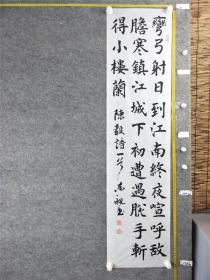 彎弓射日到江南終夜喧呼敌
膽寒鎮江城下初遭遇脱手斬
得小樓蘭 陳毅詩一首